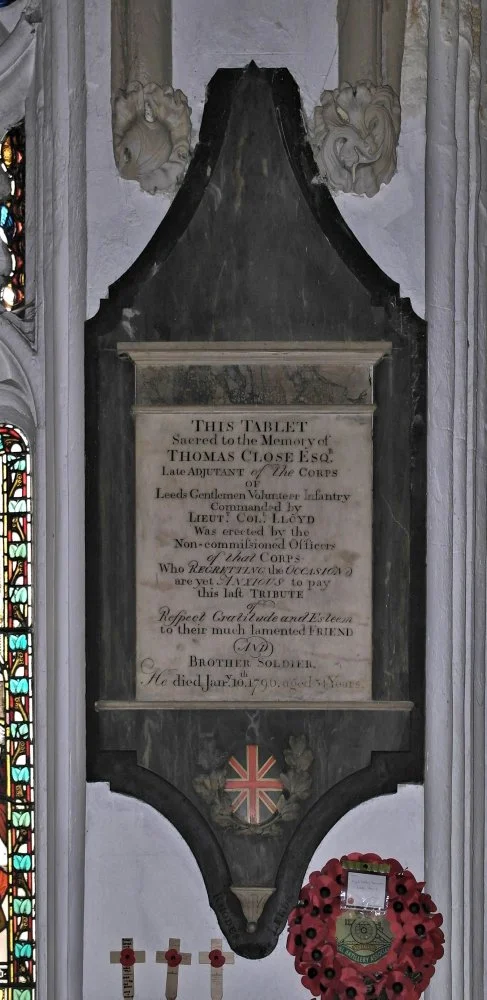 THIS TABLET
Sacred to the Memory of
THOMAS CLOSE ESQR.
Late ADJUTANT of the CORPS
OF
Leeds Gentlemen Volunteer Infantry
Commanded by
LIEUT. COL. LLOYD
Was erected by the
Non-commissioned Officers
of that CORPS
Who REGRETTING the OCCASION
are yet ANXIOUS to pay
this last TRIBUTE
of
Respect Gratitude and Esteem
to their much lamented FRIEND
AND
BROTHER SOLDIER.
He died Jany. 10th. 1796. aged 34 Years.
ARTILLERY